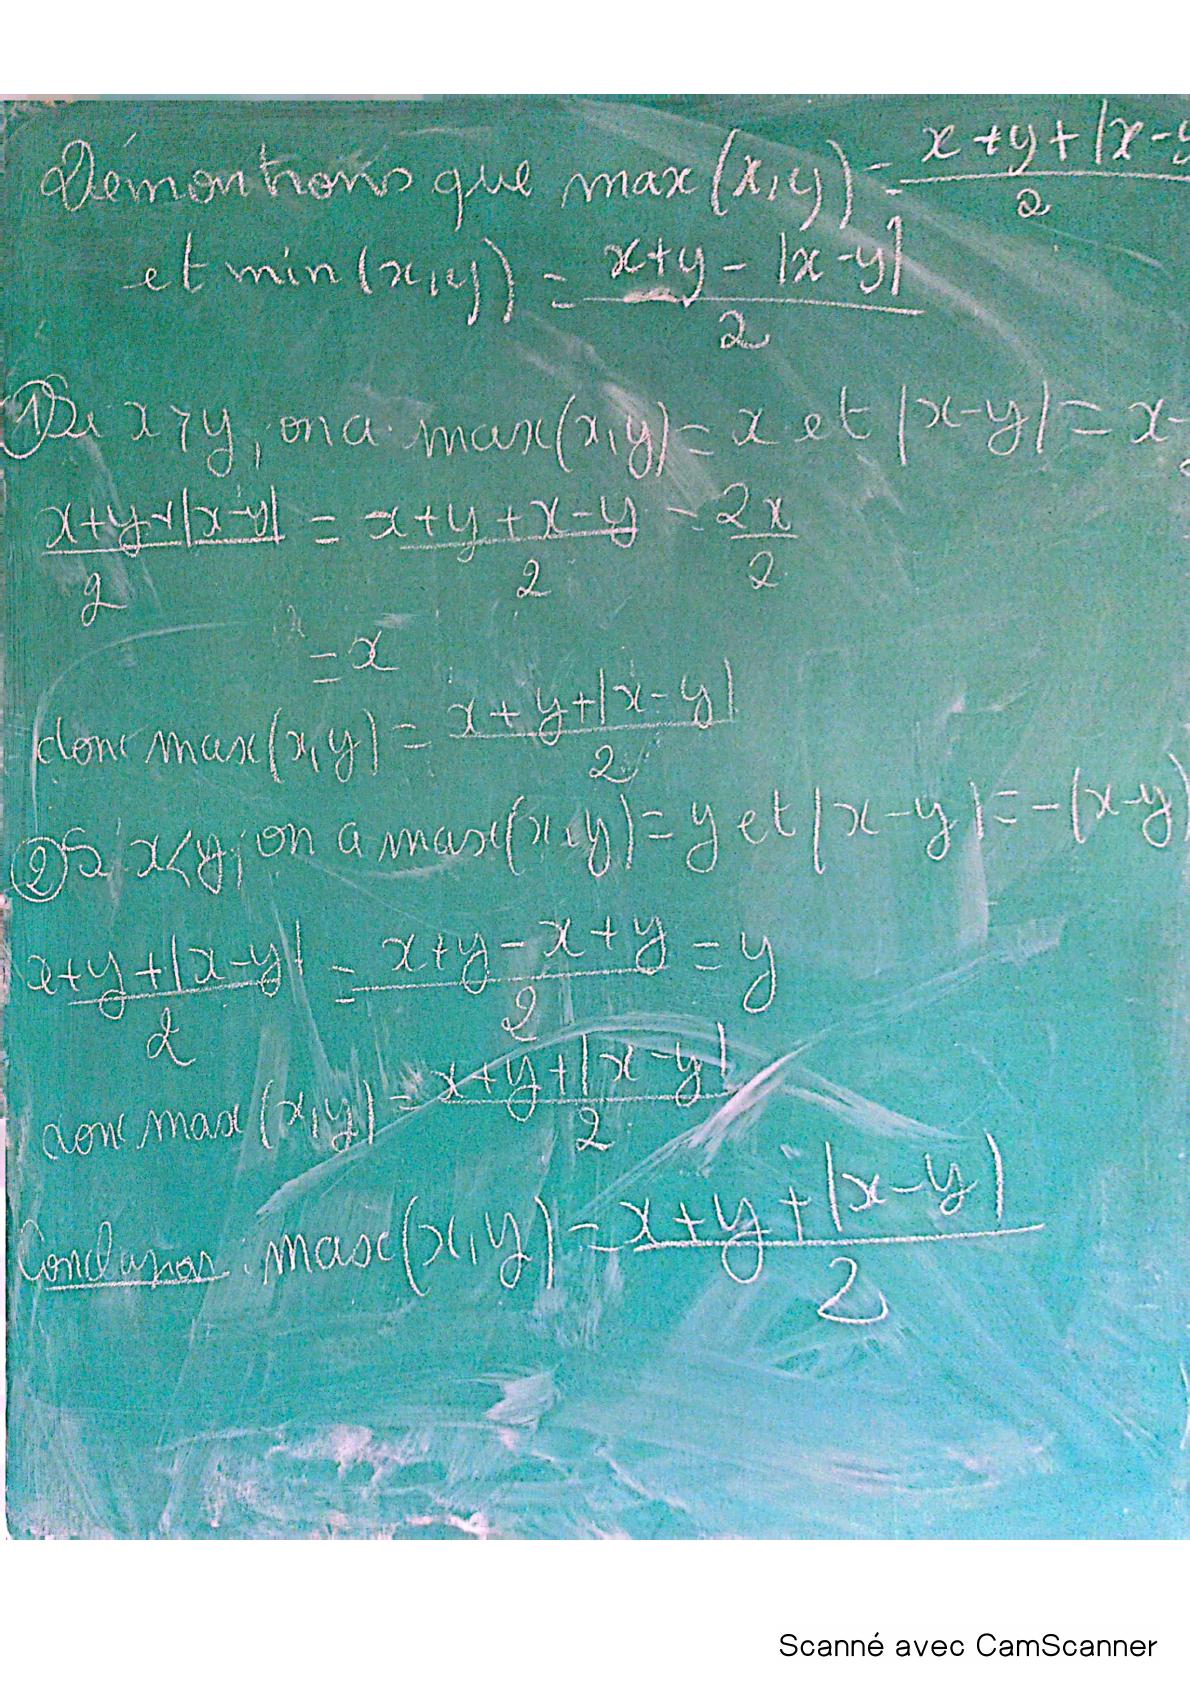 Démontrons que max(x,y) = \frac{x+y+|x-y}{2}
et min(x,y) = \frac{x+y-|x-y|}{2}
① Si x>y, on a max(x,y) = x et |x-y| = x-
\frac{x+y+|x-y|}{2} = \frac{x+y+x-y}{2} = \frac{2x}{2}
= x
donc max(x,y) = \frac{x+y+|x-y|}{2}
② Si x<y, on a max(x,y) = y et |x-y| = -(x-y)
\frac{x+y+|x-y|}{2} = \frac{x+y-x+y}{2} = y
donc max(x,y) = \frac{x+y+|x-y|}{2}
Conclusion : max(x,y) = \frac{x+y+|x-y|}{2}
Scanné avec CamScanner